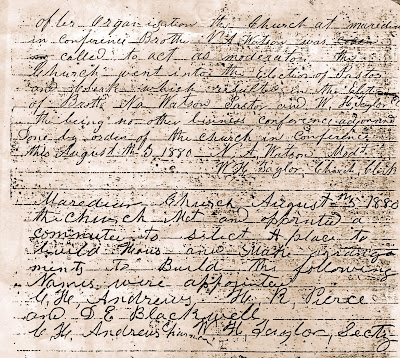 after Organisation the Church at meredian
in conference Brother N A Watson was
called to act as moderator the
Church went into the Election of Pastor
and Clerk which resulted in the election
of Broth Na Watson Pastor and W. H. Taylor C
the being no other bisiness conference adjourned
Done by order of the Church in Conference
this August th 3, 1880 N. A. Watson Modt
W. H. Taylor, Church Clerk
Maredian Church August th 5 1880
the church Met and appointed a
commitee to select A place to
Build House and Make arrainge
ments to Build the following
Names were appointed
C. H. Andrews H. R Pierce
and D. E Blackwell
C H. Andrews Chairman W. H. Taylor, Secty